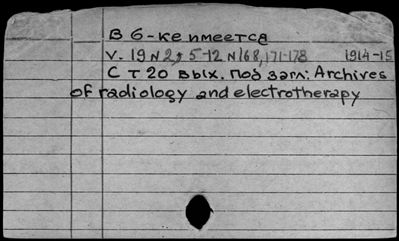 В б-ке имеется
V. 19 N 2, 5-12 N 168, 171-178 1914-15
С т 20 вых. под загл: Archives
of radiology and electrotherapy